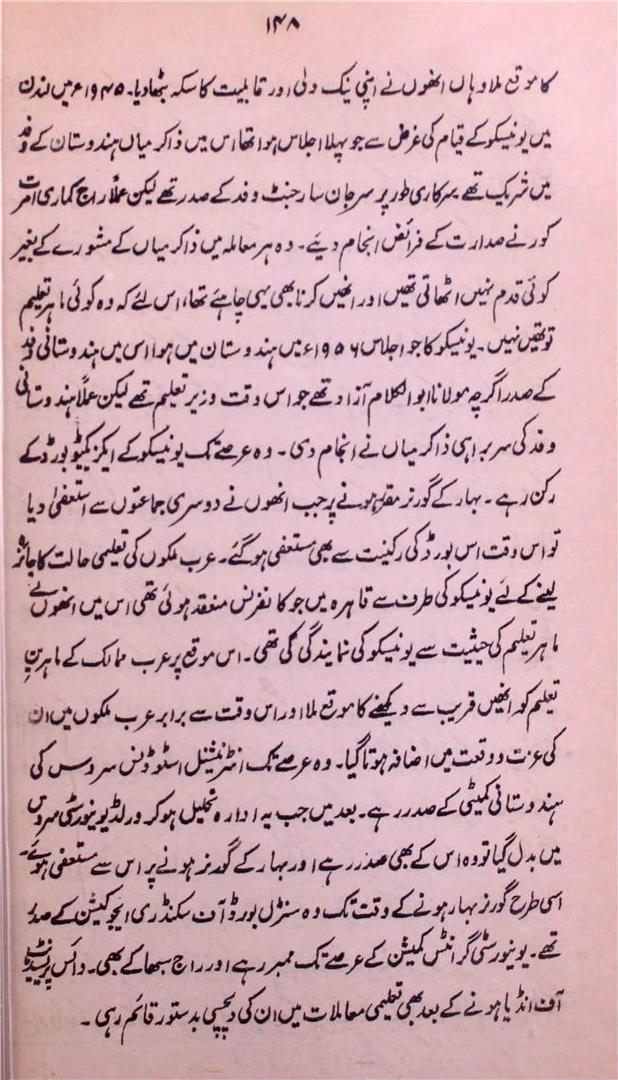 ۱۴۸
کا موقع ملا وہاں انھوں نے اپنی نیک دلی اور قابلیت کا سکہ بٹھا دیا۔ ۱۹۴۵ء میں لندن
میں یونیسکو کے قیام کی غرض سے جو پہلا اجلاس ہوا تھا اس میں ذاکر میاں ہندوستان کے وفد
میں شریک تھے سرکاری طور پر سر جان سارجنٹ وفد کے صدر تھے لیکن عملاً راج کماری امرت
کور نے صدارت کے فرائض انجام دیئے۔ وہ ہر معاملہ میں ذاکر میاں کے مشورے کے بغیر
کوئی قدم نہیں اٹھاتی تھیں اور انھیں کرنا بھی یہی چاہئے تھا، اس لئے کہ وہ کوئی ماہر تعلیم
تو تھیں نہیں۔ یونیسکو کا جو اجلاس ۱۹۵۶ء میں ہندوستان میں ہوا اس میں ہندوستانی وفد
کے صدر اگرچہ مولانا ابوالکلام آزاد تھے جو اس وقت وزیر تعلیم تھے لیکن عملاً ہندوستانی
وفد کی سربراہی ذاکر میاں نے انجام دی۔ وہ عرصے تک یونیسکو کے ایکزیکیٹو بورڈ کے
رکن رہے۔ بہار کے گورنر مقرر ہونے پر جب انھوں نے دوسری جماعتوں سے استعفیٰ دیا
تو اس وقت اس بورڈ کی رکنیت سے بھی مستعفی ہو گئے۔ عرب ملکوں کی تعلیمی حالت کا جائزہ
لینے کے لئے یونیسکو کی طرف سے قاہرہ میں جو کانفرنس منعقد ہوئی تھی اس میں انھوں نے
ماہر تعلیم کی حیثیت سے یونیسکو کی نمایندگی کی تھی۔ اس موقع پر عرب ممالک کے ماہرینِ
تعلیم کو انھیں قریب سے دیکھنے کا موقع ملا اور اس وقت سے برابر عرب ملکوں میں ان
کی عزت و وقعت میں اضافہ ہوتا گیا۔ وہ عرصے تک انٹرنیشنل اسٹوڈنس سروس کی
ہندوستانی کمیٹی کے صدر رہے۔ بعد میں جب یہ ادارہ تحلیل ہو کر ورلڈ یونیورسٹی سروس
میں بدل گیا تو وہ اس کے بھی صدر رہے اور بہار کے گورنر ہونے پر اس سے مستعفی ہوئے۔
اسی طرح گورنر بہار ہونے کے وقت تک وہ سنٹرل بورڈ آف سکنڈری ایجوکیشن کے صدر
تھے۔ یونیورسٹی گرانٹس کمیشن کے عرصے تک ممبر رہے اور راج سبھا کے بھی۔ وائس پریسیڈنٹ
آف انڈیا ہونے کے بعد بھی تعلیمی معاملات میں ان کی دلچسپی بدستور قائم رہی۔